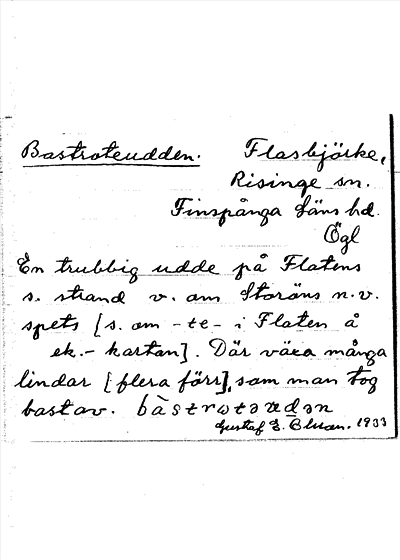 Bastroteudden. Flasbjörke,
Risinge sn.
Finspånga läns hd.
Ögl
En trubbig udde på Flatens
s. strand v. om Storöns n.v.
spets [s. om -te- i Flaten å
ek.-kartan]. Där växa många
lindar [flera förr], som man tog
bast av.
Gustaf E. 1933